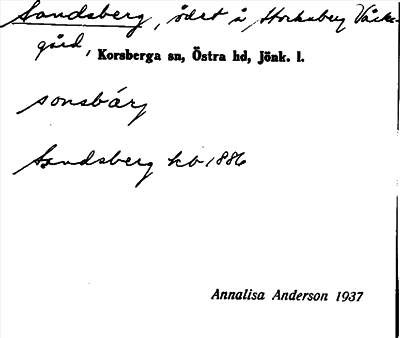 Sandsberg, ödet å Storksberg Väster-
gård, Korsberga sn, Östra hd, Jönk. l.
sonsbárj
Sandsberg kb 1886
Annalisa Anderson 1937